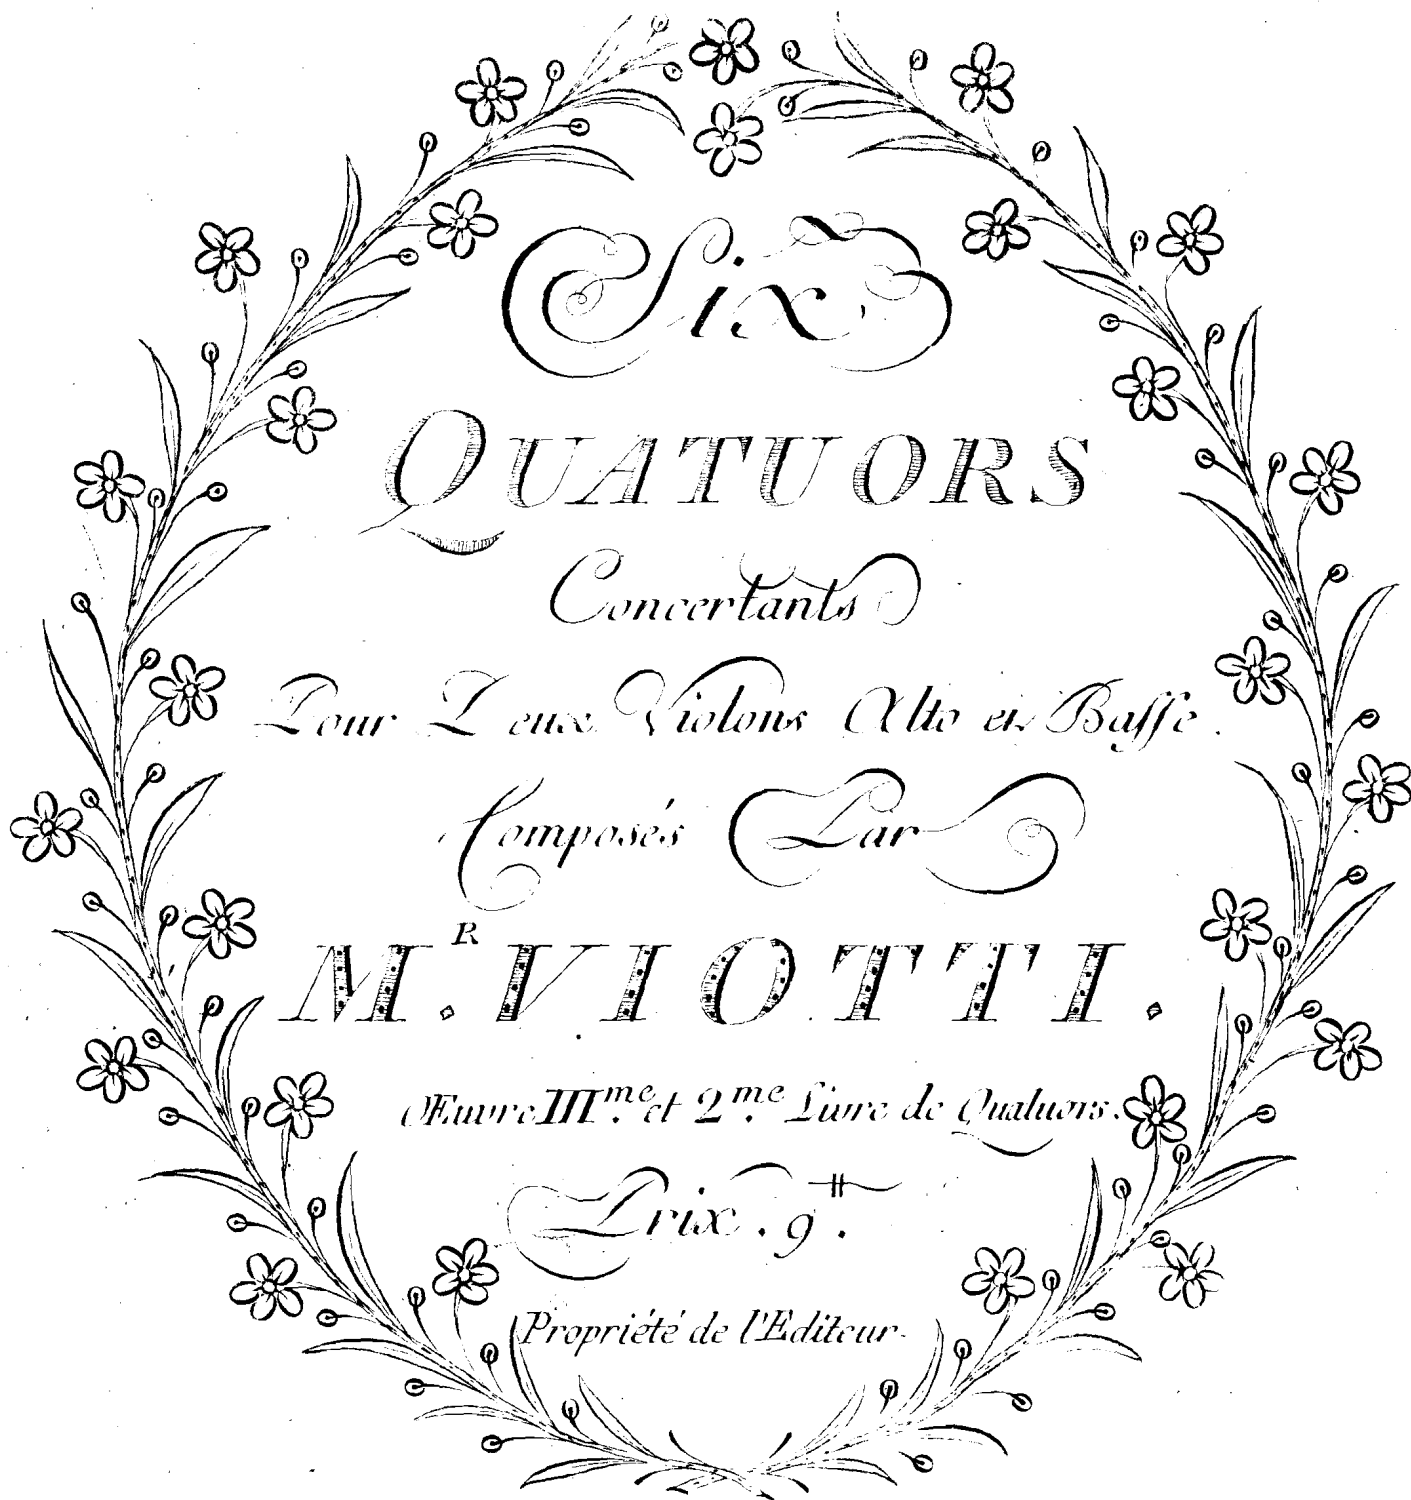 Six
QUATUORS
Concertants
Pour Deux Violons Alto et Basse.
Composés Par
M.R VIOTTI.
Œuvre IIIme. et 2me. Livre de Quatuors.
Prix. 9.tt
Propriété de l'Editeur